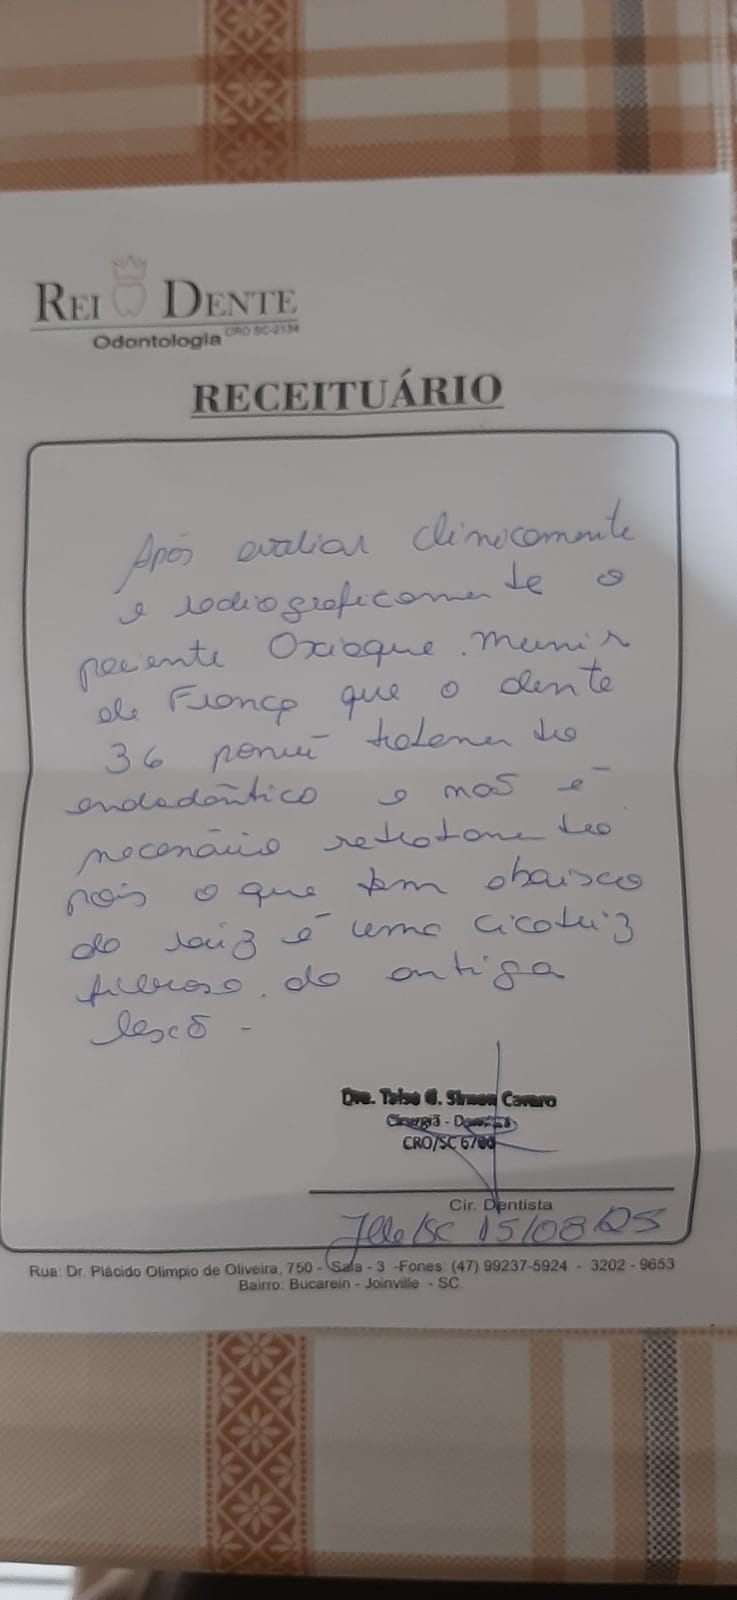 REI DENTE
Odontologia CRO SC-2134
RECEITUÁRIO
Após avaliar clinicamente
e radiograficamente o
paciente Oxiaque Munir
de França que o dente
36 possui tratamento
endodôntico e não é
necessário retratamento
pois o que tem abaixo
da raiz é uma cicatriz
fibrosa da antiga
lesão -
Dra. Taise G. Simon Cavaro
Cirurgiã - Dentista
CRO/SC
Cir. Dentista
Jlle/SC 15/08/25
Rua: Dr. Plácido Olimpio de Oliveira, 750 - Sala - 3 -Fones: (47) 99237-5924 - 3202 - 9653
Bairro: Bucarein - Joinville - SC.